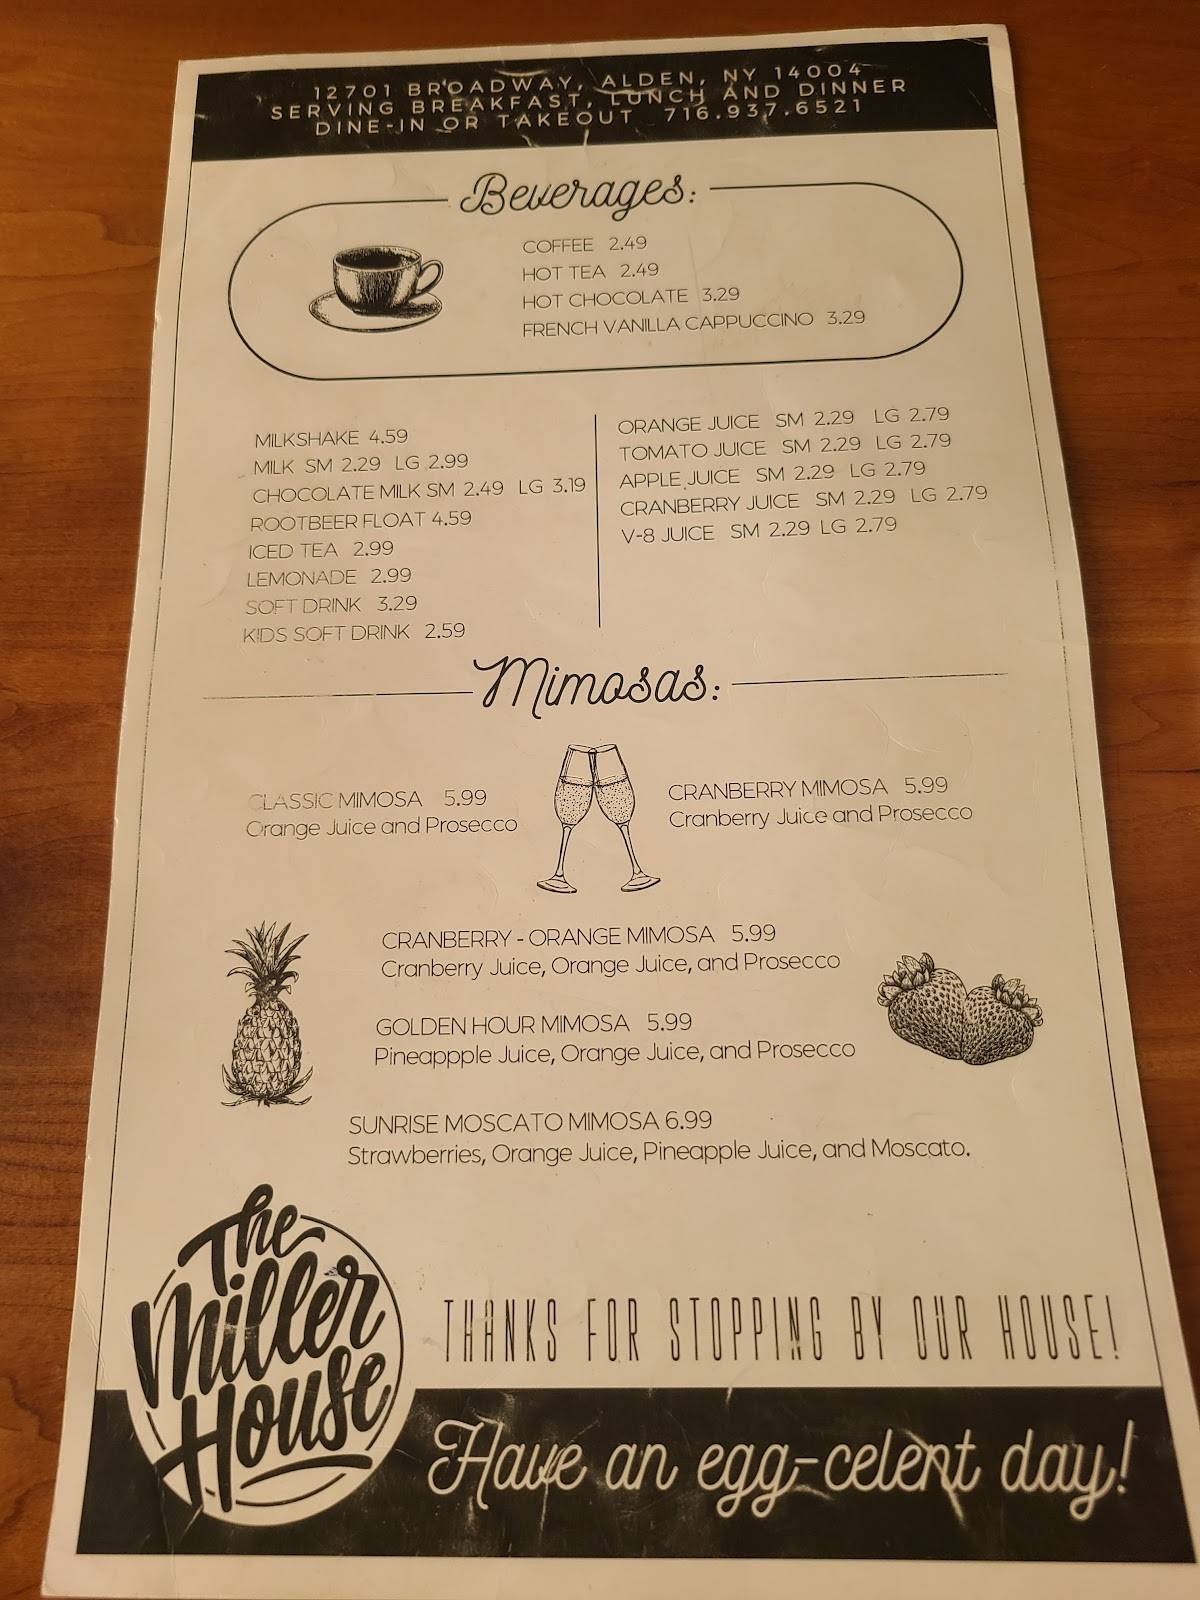 12701 BROADWAY, ALDEN, NY 14004
SERVING BREAKFAST, LUNCH AND DINNER
DINE-IN OR TAKEOUT 716.937.6521
Beverages:
COFFEE 2.49
HOT TEA 2.49
HOT CHOCOLATE 3.29
FRENCH VANILLA CAPPUCCINO 3.29
MILKSHAKE 4.59
MILK SM 2.29 LG 2.99
CHOCOLATE MILK SM 2.49 LG 3.19
ROOTBEER FLOAT 4.59
ICED TEA 2.99
LEMONADE 2.99
SOFT DRINK 3.29
KIDS SOFT DRINK 2.59
ORANGE JUICE SM 2.29 LG 2.79
TOMATO JUICE SM 2.29 LG 2.79
APPLE JUICE SM 2.29 LG 2.79
CRANBERRY JUICE SM 2.29 LG 2.79
V-8 JUICE SM 2.29 LG 2.79
Mimosas:
CLASSIC MIMOSA 5.99
Orange Juice and Prosecco
CRANBERRY MIMOSA 5.99
Cranberry Juice and Prosecco
CRANBERRY - ORANGE MIMOSA 5.99
Cranberry Juice, Orange Juice, and Prosecco
GOLDEN HOUR MIMOSA 5.99
Pineappple Juice, Orange Juice, and Prosecco
SUNRISE MOSCATO MIMOSA 6.99
Strawberries, Orange Juice, Pineapple Juice, and Moscato.
The
Miller
House
THANKS FOR STOPPING BY OUR HOUSE!
Have an egg-celent day!